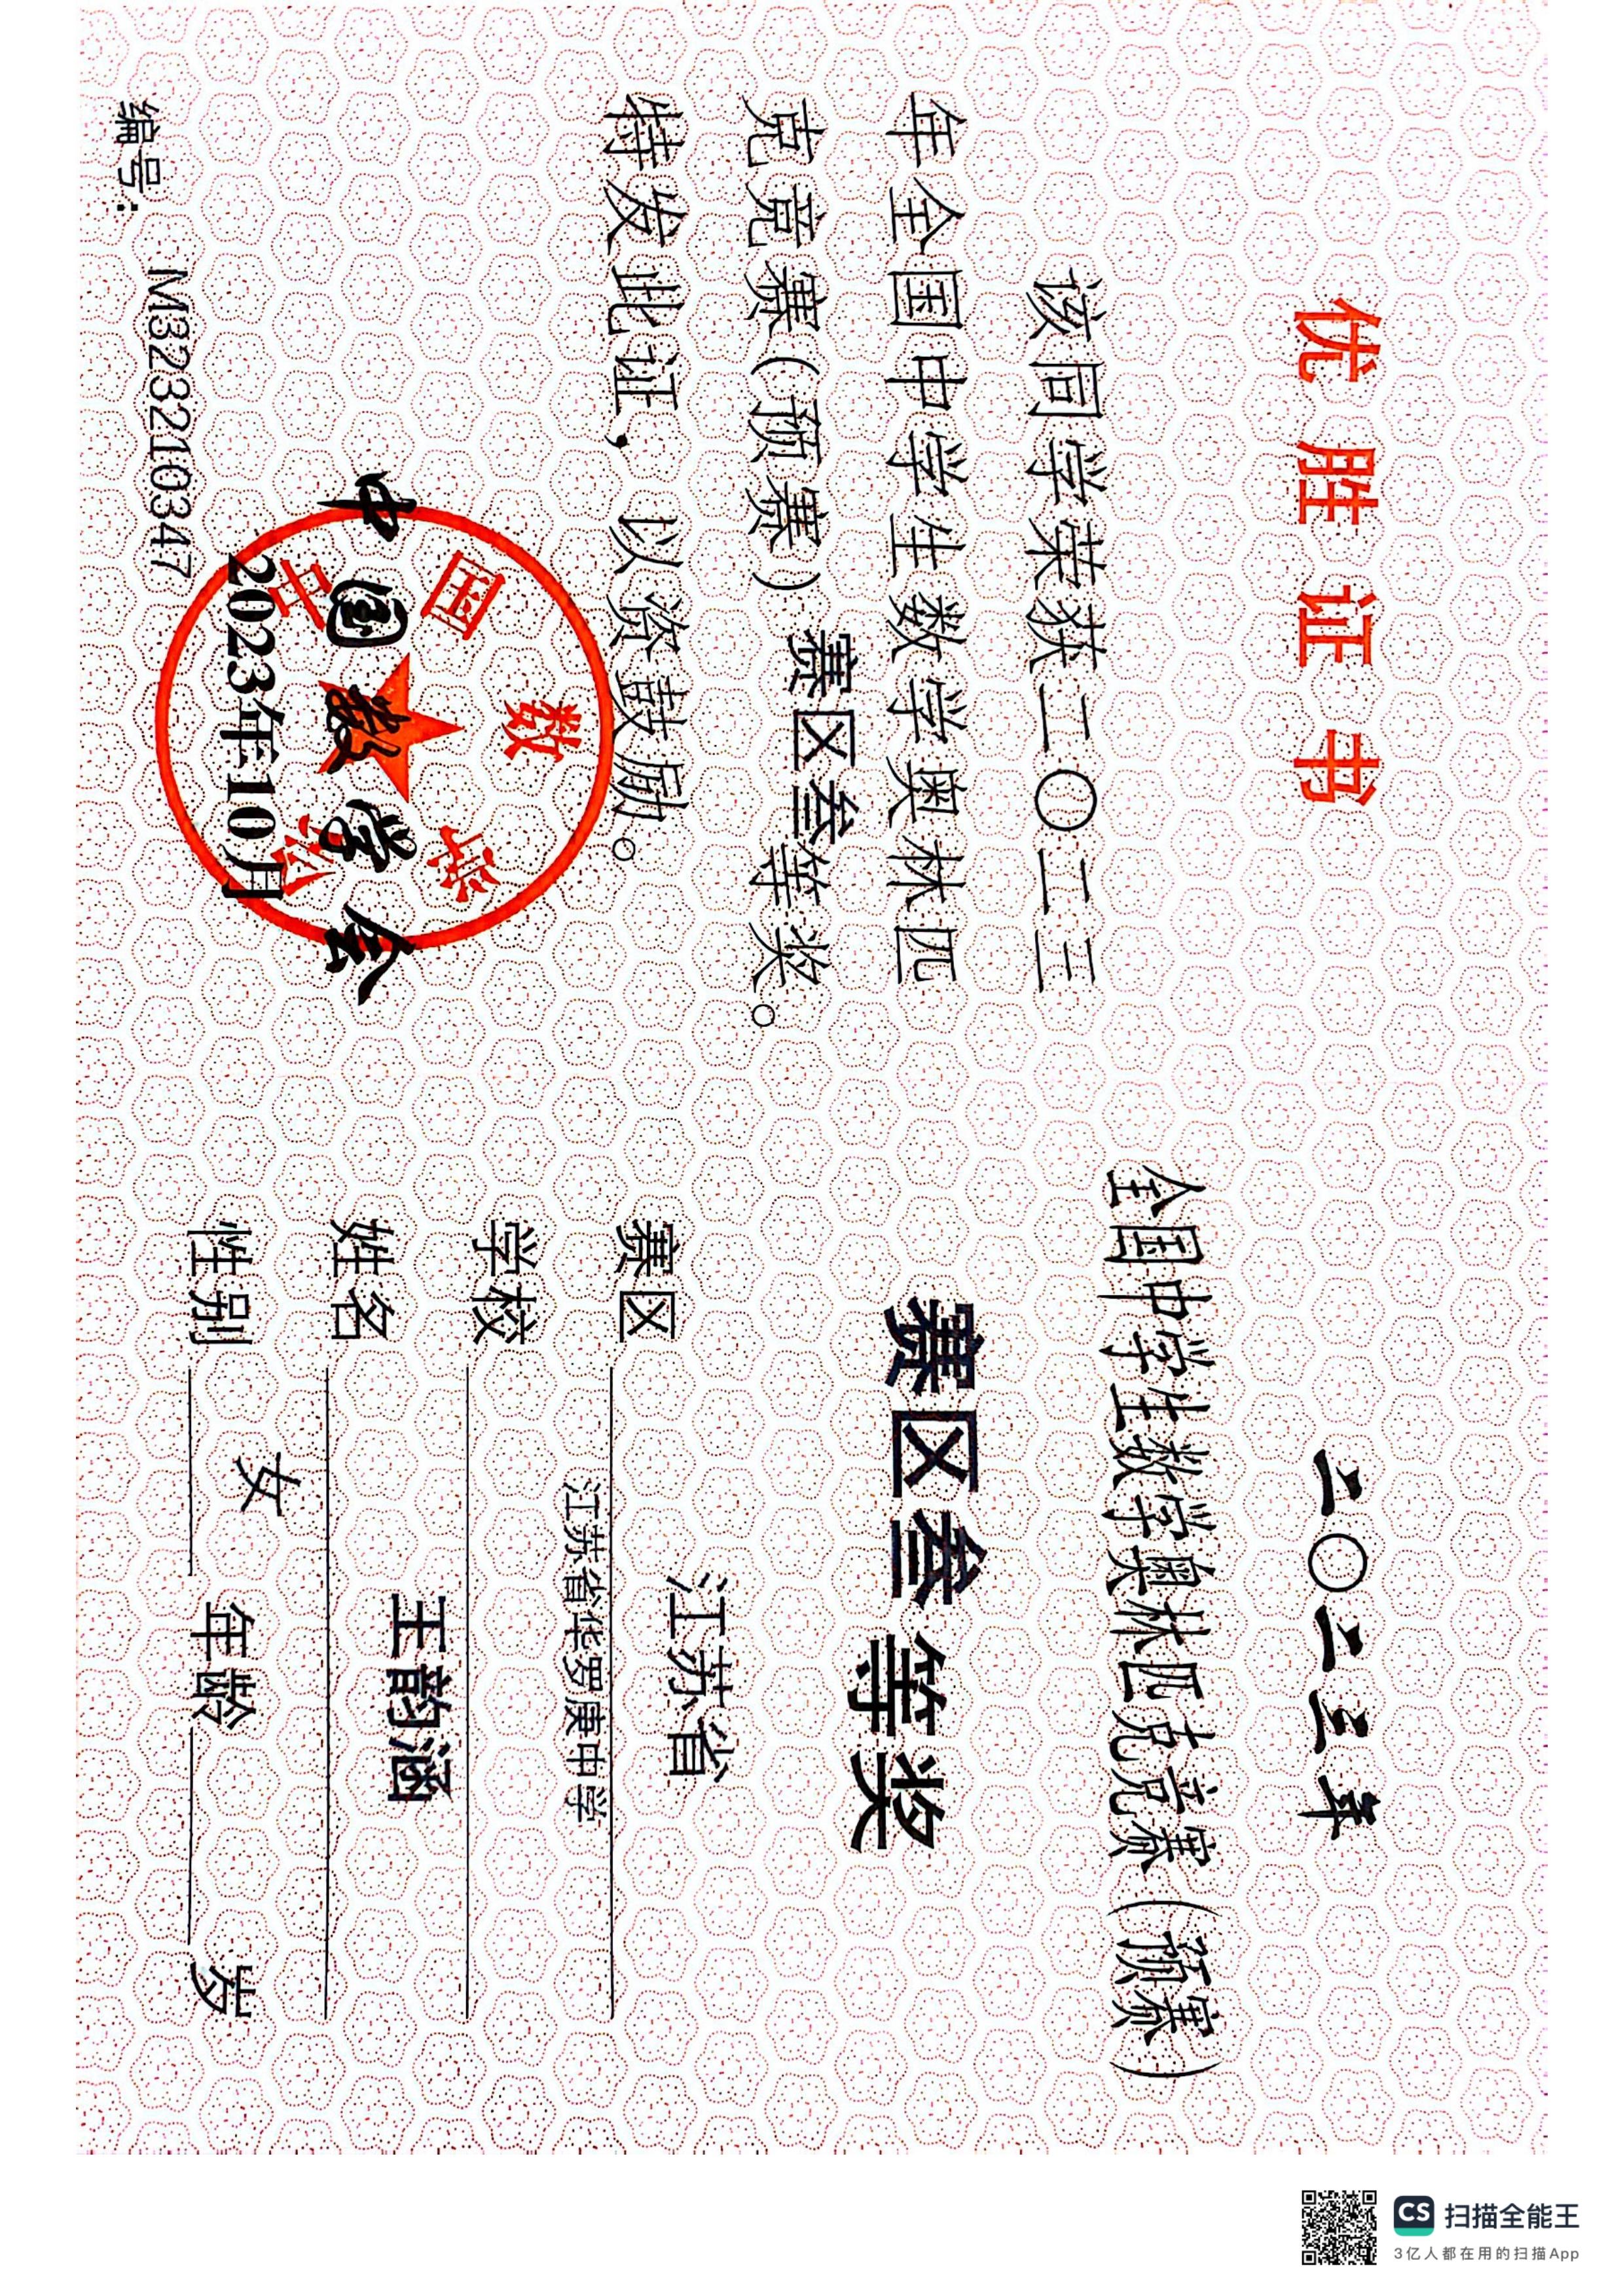 优胜证书
该同学荣获二〇二三
年全国中学生数学奥林匹
克竞赛(预赛)赛区叁等奖。
特发此证，以资鼓励。
中国数学会
2023年10月
中国数学会
编号：M3232310347
二〇二三年
全国中学生数学奥林匹克竞赛(预赛)
赛区叁等奖
赛区 江苏省
学校 江苏省华罗庚中学
姓名 王韵涵
性别 女 年龄 岁
CS 扫描全能王
3亿人都在用的扫描App